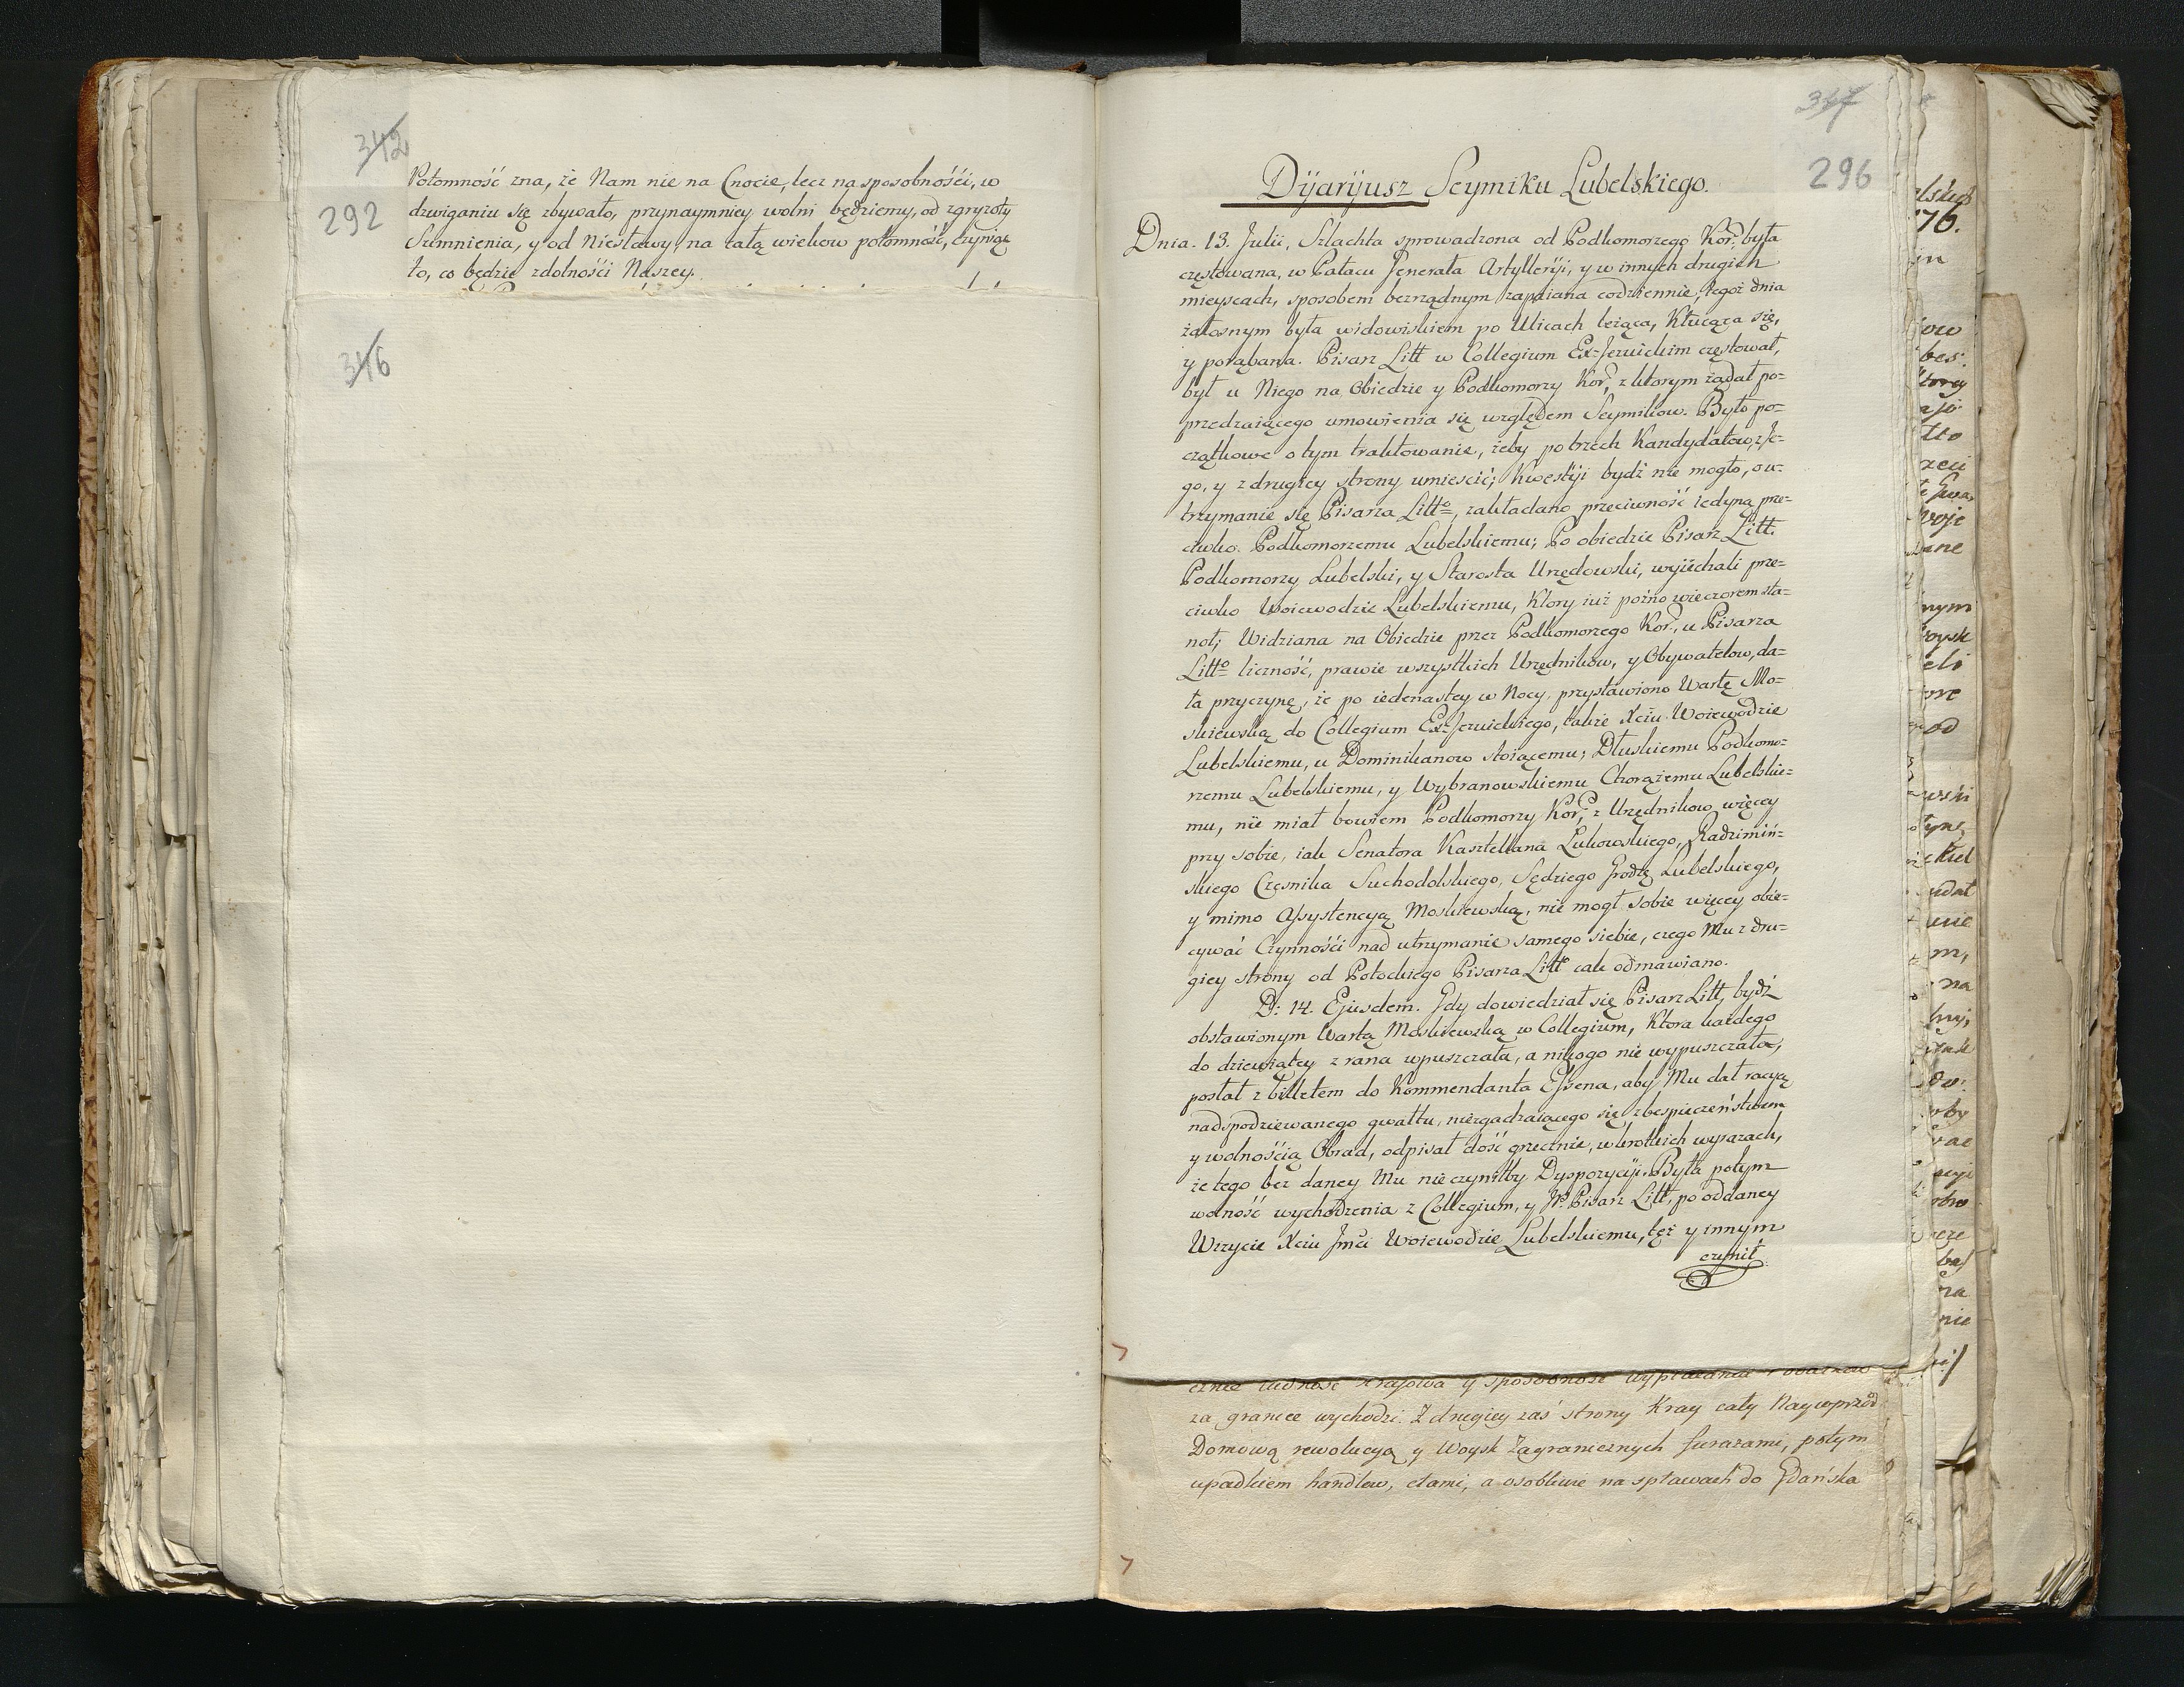 342
292
Potomność zna, że Nam nie na Cnocie, lecz na sposobności, w
dzwiganiu się zbywało, przynaymniey wolni będziemy, od zgryzoty
Sumnienia, y od Niesławy, na całą wiekow potomność, czyniąc
to, co będzie zdolności Naszey.
346
347
296
Dijaryusz Seymiku Lubelskiego.
Dnia. 13. Julii, Szlachta sprowadzona od Podkomorzego Kor: była
częstowana, w Pałacu Jenerała Artylleryi, y w innych drugich
mieyscach, sposobem bezrządnym zapaiana codziennie, tegoż dnia
żałosnym była widowiskiem po Ulicach leżąca, Kłucąca się,
y porąbana. Pisarz Litt w Collegium Ex-Jezuickim częstował,
był u Niego na Obiedzie y Podkomorzy Kor, z ktorym żądał po=
przedzaiącego umowienia się względem Seymikow. Było po=
czątkowe o tym traktowanie, żeby po trzech Kandydatow, z Je=
go, y z drugiey strony umieścić; Kwestyi bydź nie mogło, o u=
trzymanie się Pisarza Litt⁰, zakładano przeciwność iedyną prze=
ciwko Podkomorzemu Lubelskiemu; Po obiedzie Pisarz Litt.
Podkomorzy Lubelski, y Starosta Urzędowski, wyiechali prze=
ciwko Woiewodzie Lubelskiemu, Ktory iuż pożno wieczorem sta=
noł; Widziana na Obiedzie przez Podkomorzego Kor, u Pisarza
Litt⁰ liczność, prawie wszystkich Urzędnikow, y Obywatelow, da=
ła przyczynę, że po iedenastey w Nocy, przystawiono Wartę Mo=
skiewską do Collegium Ex-Jezuickiego, także Xciu Woiewodzie
Lubelskiemu, u Dominikanow stoiącemu; Dłuskiemu Podkomo=
rzemu Lubelskiemu, y Wybranowskiemu Chorążemu Lubelskie=
mu, nie miał bowiem Podkomorzy Kor, z Urzędnikow więcey
przy sobie, iak Senatora Kasztellana Łukowskiego, Radzimiń=
skiego Cześnika Suchodolskiego, Sędziego Grodz Lubelskiego,
y mimo Assystencyą Moskiewską, nie mogł sobie więcey obie=
cywać Czynności nad utrzymanie samego siebie, czego Mu z dru=
giey strony od Potockiego Pisarza Litt⁰ cale odmawiano.
D: 14. Ejusdem. Gdy dowiedział się Pisarz Litt, bydź
obstawionym Wartą Moskiewską w Collegium, Ktora każdego
do dziewiątey z rana wpuszczała, a nikogo nie wypuszczała,
posłał z billetem do Kommendanta Essena, aby Mu dał racyą
nadspodziewanego gwałtu, niezgadzaiącego się z bespieczeństwem
y wolnością Obrad, odpisał dość grzecznie, w krotkich wyrazach,
że tego bez daney Mu nie czyniłby Dyspozycyi. Była potym
wolność wychodzenia z Collegium, y Pisarz Litt, po oddaney
Wizycie Xciu Jmci Woiewodzie Lubelskiemu, też y innym
czynił
za granice wychodzi. Z drugiey zaś strony Kray cały Naywprzód
Domową rewolucyą y Woysk Zagranicznych furażami, potym
upadkiem handlow, cłami, a osobliwie na spławach do Gdańska